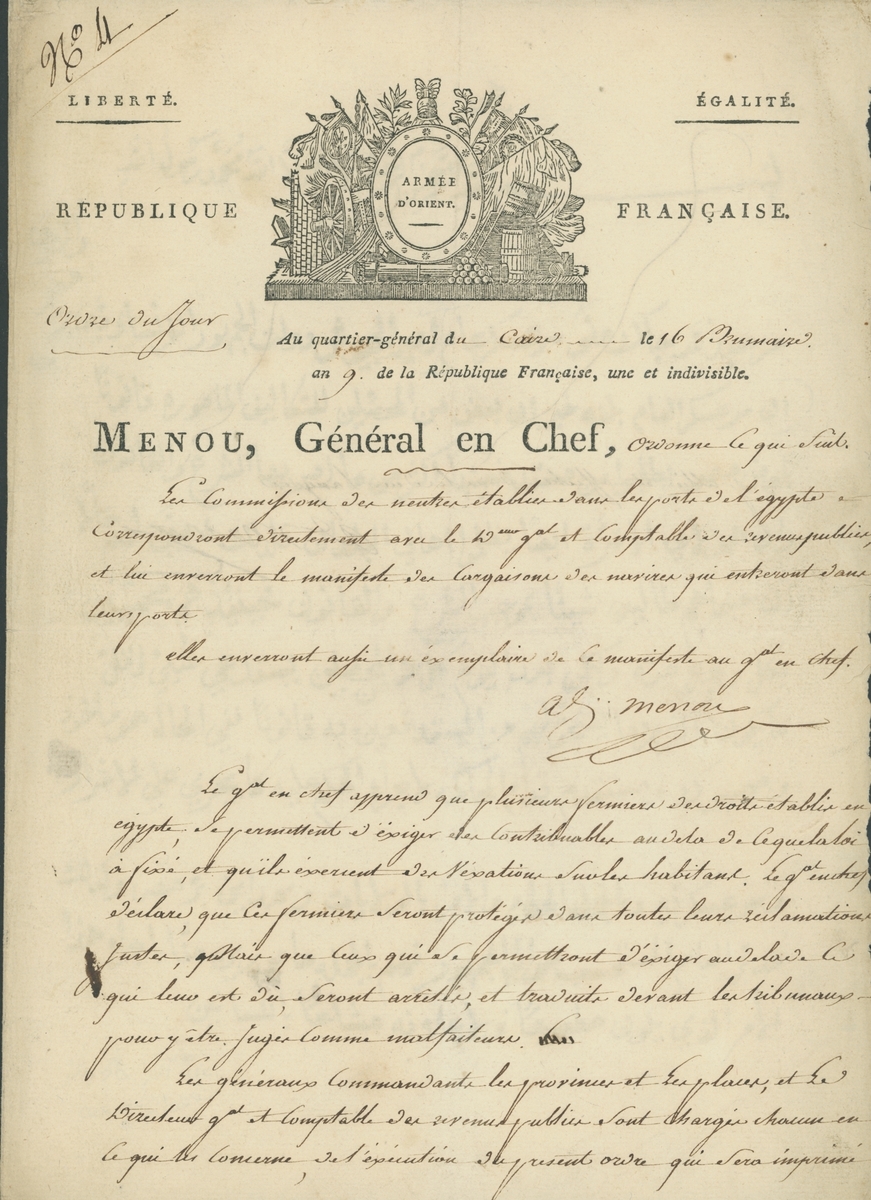 N° 4
LIBERTÉ.
ÉGALITÉ.
ARMÉE
D'ORIENT.
RÉPUBLIQUE
FRANÇAISE.
Ordre du Jour
Au quartier-général du Caire le 16 Brumaire.
an 9. de la République Française, une et indivisible.
MENOU, Général en Chef, ordonne ce qui suit.
Les Commissions des neutres établies dans les ports de l'égypte
Correspondront directement avec le D.eur g.al et Comptable des revenus publics,
et lui enverront le manifeste des Cargaisons des navires qui entreront dans
leurs ports.
elles enverront aussi un éxemplaire de ce manifeste au g.al en chef.
abj: menou
Le g.al en chef apprend que plusieurs fermiers des droits établis en
égypte, se permettent d'éxiger des Contribuables au dela de ce que la loi
à fixé, et qu'ils éxercent des véxations sur les habitans. Le g.al en chef
déclare, que ces fermiers seront protégés dans toutes leurs réclamations
Justes, Mais que ceux qui se permettront d'éxiger au dela de ce
qui leur est dû, seront arrêtés, et traduits devant les tribunaux
pour y être Jugés comme malfaiteurs.
Les généraux Commandants les provinces et les places, et Le
Directeur g.al et Comptable des revenus publics sont chargés chacun en
ce qui les concerne, de l'éxécution du présent ordre qui sera imprimé